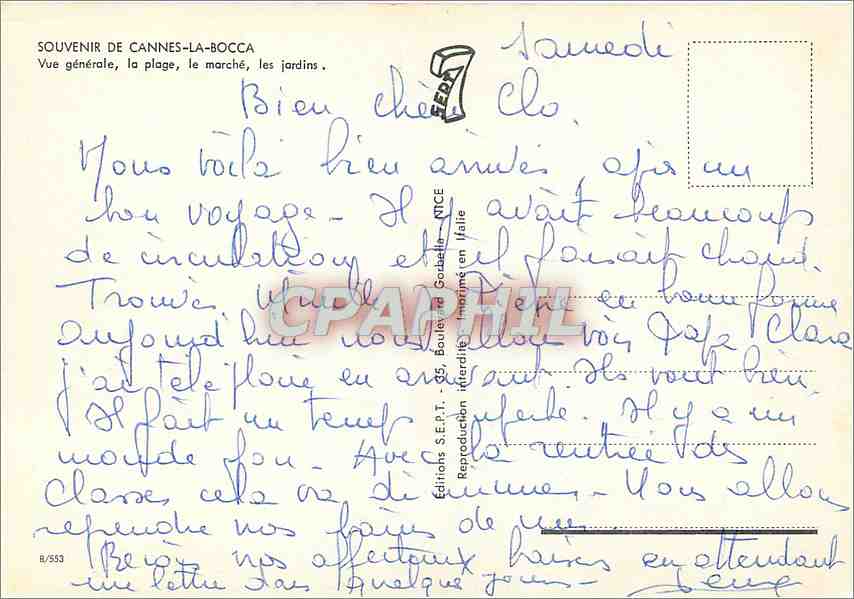 SOUVENIR DE CANNES-LA-BOCCA
Vue générale, la plage, le marché, les jardins.
SEPT
Samedi
Bien chère Clo.
Nous voilà bien arrivés, après un
bon voyage - Il y avait beaucoup
de circulation et il faisait chaud.
Trouvés en bonne forme
aujourd'hui nous allons voir Papa Clara
j'ai téléphoné en arrivant. Ils vont bien.
Il fait un temps superbe. Il y a un
monde fou - Avec la rentrée des
classes cela va diminuer - Nous allons
reprendre nos bains de mer.
Reçois nos affectueux baisers en attendant
une lettre dans quelques jours -
Editions S.E.P.T. - 35, Boulevard Gorbella - NICE
Reproduction interdite - Imprimé en Italie
CPAPHIL
8/553